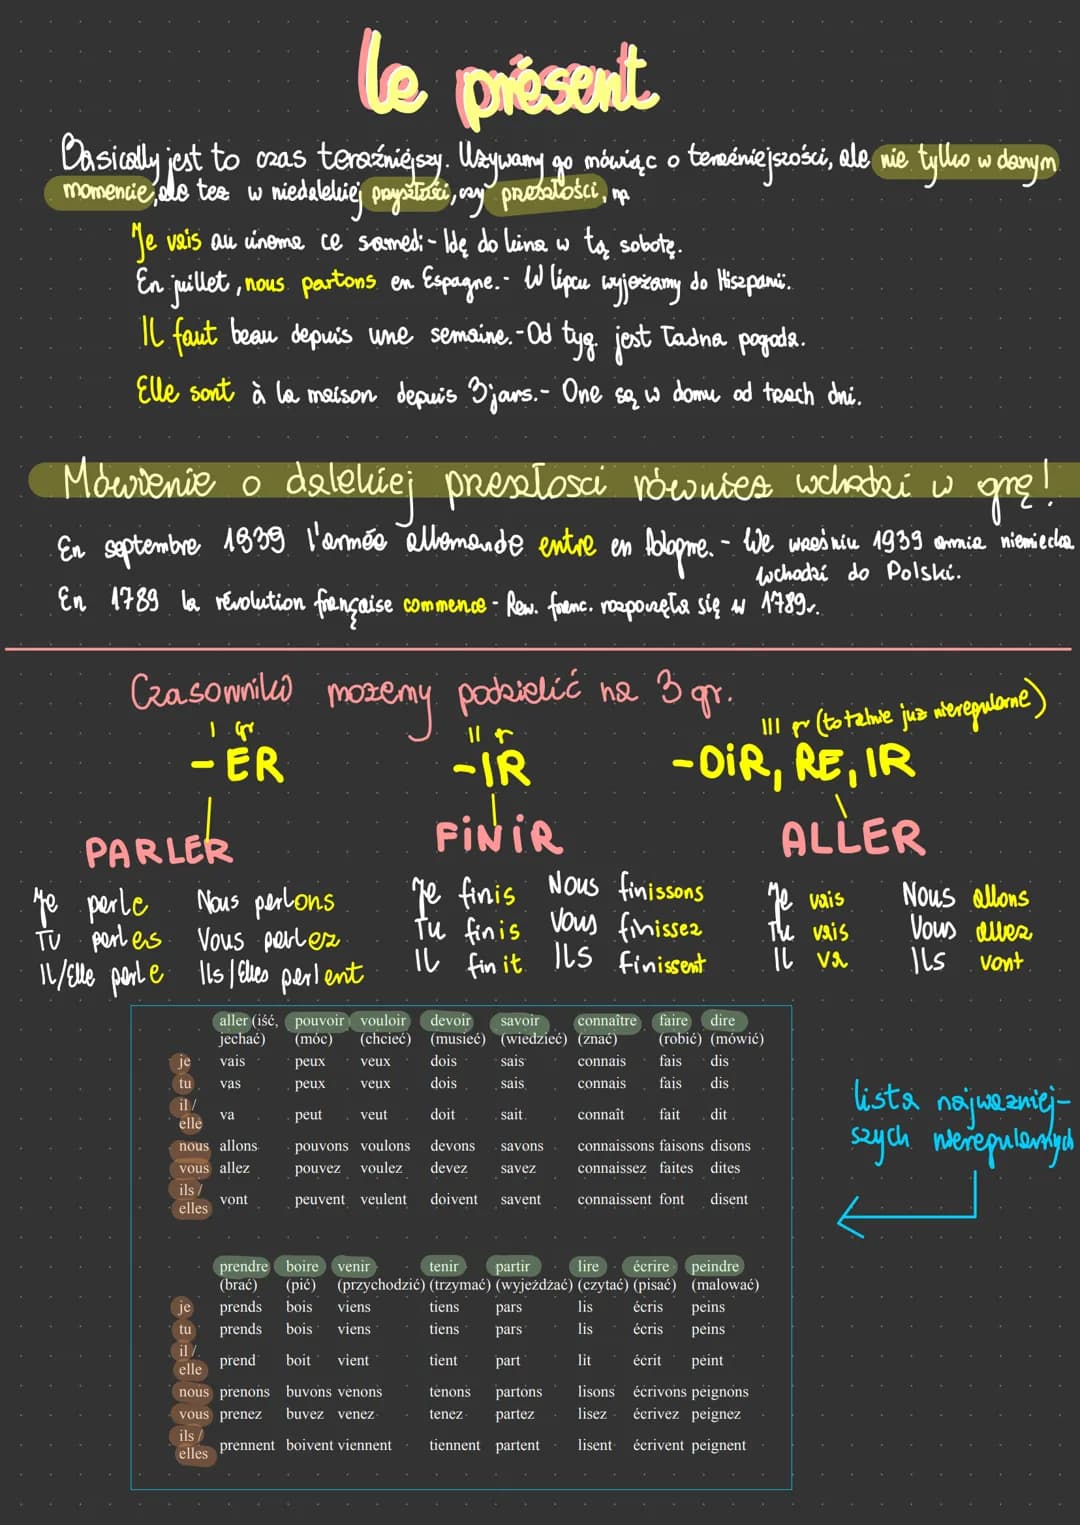 le présent
Basically jest to czas teraźniejszy. Używamy go mówiąc o teraźniejszości, ale nie tylko w danym
momencie, ale też w niedalekiej przyszłości, czy przeszłości, np
Je vais au cinema ce samedi - Idę do kina w tą sobotę.
En juillet, nous partons en Espagne. - W lipcu wyjeżamy do Hiszpanii.
Il faut beau depuis une semaine. - Od tyg. jest ładna pogoda.
Elle sont à la maison depuis 3 jars. - One są w domu od trzech dni.
Mówienie o dalekiej przeszłosci również wchodzi w grę!
En septembre 1939 l'armée allemande entre en Pologne. - We wrześniu 1939 armia niemiecka
wchodzi do Polski.
En 1789 la révolution française commence - Rew. franc. rozpoczęła się w 1789r.
Czasowniki możemy podzielić na 3 gr.
I gr II gr III gr (totalnie już nieregularne)
-ER -IR -OIR, RE, IR
PARLER FINIR ALLER
Je parle Nous parlons Je finis Nous finissons Je vais Nous allons
Tu parles Vous parlez Tu finis Vous finissez Tu vais Vous allez
Il/Elle parle Ils/Elles parlent Il finit Ils finissent Il va Ils vont
aller (iść, pouvoir vouloir devoir savoir connaître faire dire
jechać) (móc) (chcieć) (musieć) (wiedzieć) (znać) (robić) (mówić)
je vais peux veux dois sais connais fais dis
tu vas peux veux dois sais connais fais dis
il /
elle va peut veut doit sait connaît fait dit
nous allons pouvons voulons devons savons connaissons faisons disons
vous allez pouvez voulez devez savez connaissez faites dites
ils /
elles vont peuvent veulent doivent savent connaissent font disent
lista najważniej-
szych nieregularnych
prendre boire venir tenir partir lire écrire peindre
(brać) (pić) (przychodzić) (trzymać) (wyjeżdżać) (czytać) (pisać) (malować)
je prends bois viens tiens pars lis écris peins
tu prends bois viens tiens pars lis écris peins
il /
elle prend boit vient tient part lit écrit peint
nous prenons buvons venons tenons partons lisons écrivons peignons
vous prenez buvez venez tenez partez lisez écrivez peignez
ils /
elles prennent boivent viennent tiennent partent lisent écrivent peignent